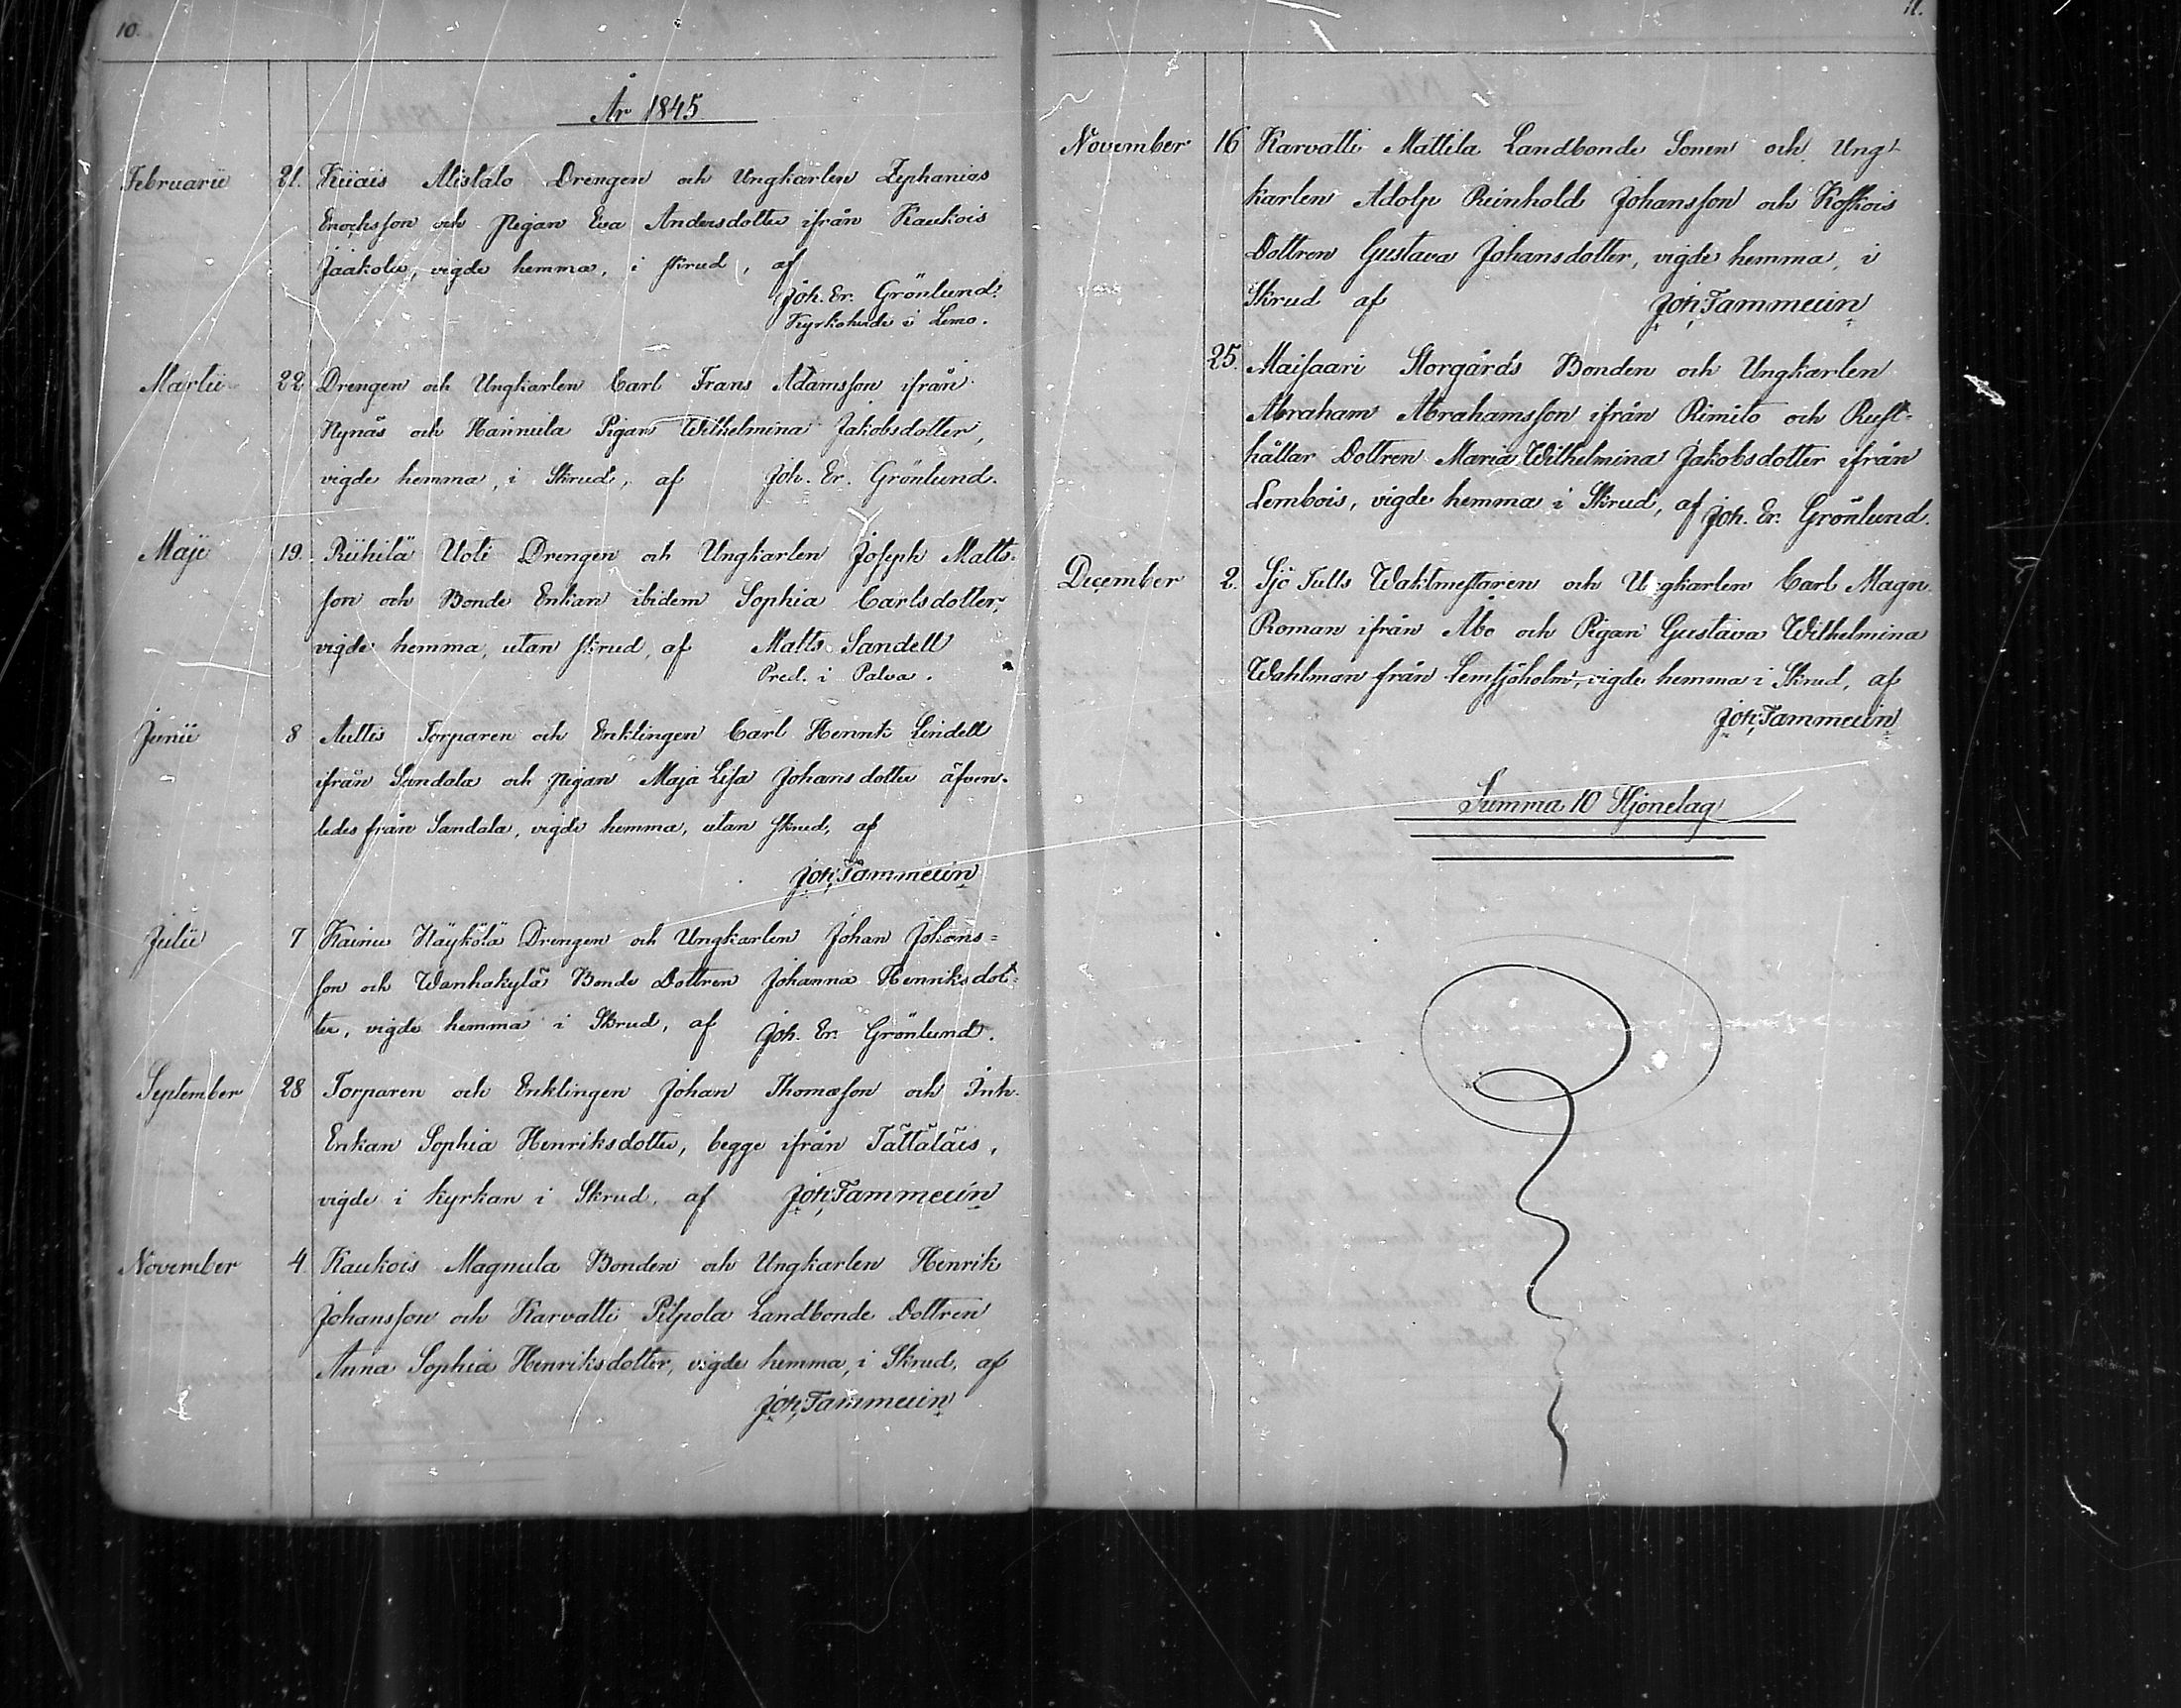 10.
År 1845.
Februarii 21. Kiiais Alistalo Drengen och Ungkarlen Zephanias
Enochsson och Pigan Eva Andersdotter ifrån Kaukois
Jaakola, vigde hemma, i skrud, af
Joh. Er. Grönlund.
Kyrkoherde i Lemo.
Martii 22 Drengen och Ungkarlen Carl Frans Adamsson ifrån
Nynäs och Hannula Pigan Wilhelmina Jakobsdotter,
vigde hemma, i Skrud, af Joh. Er. Grönlund.
Maji 19. Riihilä Uoti Drengen och Ungkarlen Joseph Matts-
son och Bonde Enkan ibidem Sophia Carlsdotter,
vigde hemma, utan skrud, af Matts Sandell
Pred. i Palva.
Junii 8 Autti Torparen och Enklingen Carl Henrik Lindell
ifrån Sandala och Pigan Maja Lisa Johansdotter äfven-
ledes från Sandala, vigde hemma, utan skrud, af
Joh. Tammelin
Julii 7 Kainu Näykölä Drengen och Ungkarlen Johan Johans=
son och Wanhakylä Bonde Dottren Johanna Henriksdot=
ter, vigde hemma i Skrud, af Joh. Er. Grönlund.
September 28 Torparen och Enklingen Johan Thomasson och Inh.
Enkan Sophia Henriksdotter, begge ifrån Tättäläis,
vigde i kyrkan i Skrud, af Joh. Tammelin
November 4. Kaukois Magnula Bonden och Ungkarlen Henrik
Johansson och Karvatti Pilpola Landbonde Dottren
Anna Sophia Henriksdotter, vigde hemma, i Skrud, af
Joh. Tammelin
11.
November 16 Karvatti Mattila Landbonde Sonen och Ung-
karlen Adolp Reinhold Johansson och Koskois
Dottren Gustava Johansdotter, vigde hemma, i
Skrud af Joh. Tammelin
25. Maisaari Storgårds Bonden och Ungkarlen
Abraham Abrahamsson ifrån Rimito och Rust-
hållar Dottren Maria Wilhelmina Jakobsdotter ifrån
Lembois, vigde hemma i Skrud, af Joh. Er. Grönlund.
December 2. Sjö Tulls Waktmestaren och Ungkarlen Carl Magn.
Roman ifrån Åbo och Pigan Gustava Wilhelmina
Wahlman från Lemsjöholm, vigde hemma i Skrud, af
Joh. Tammelin
Summa 10 Hjonelag